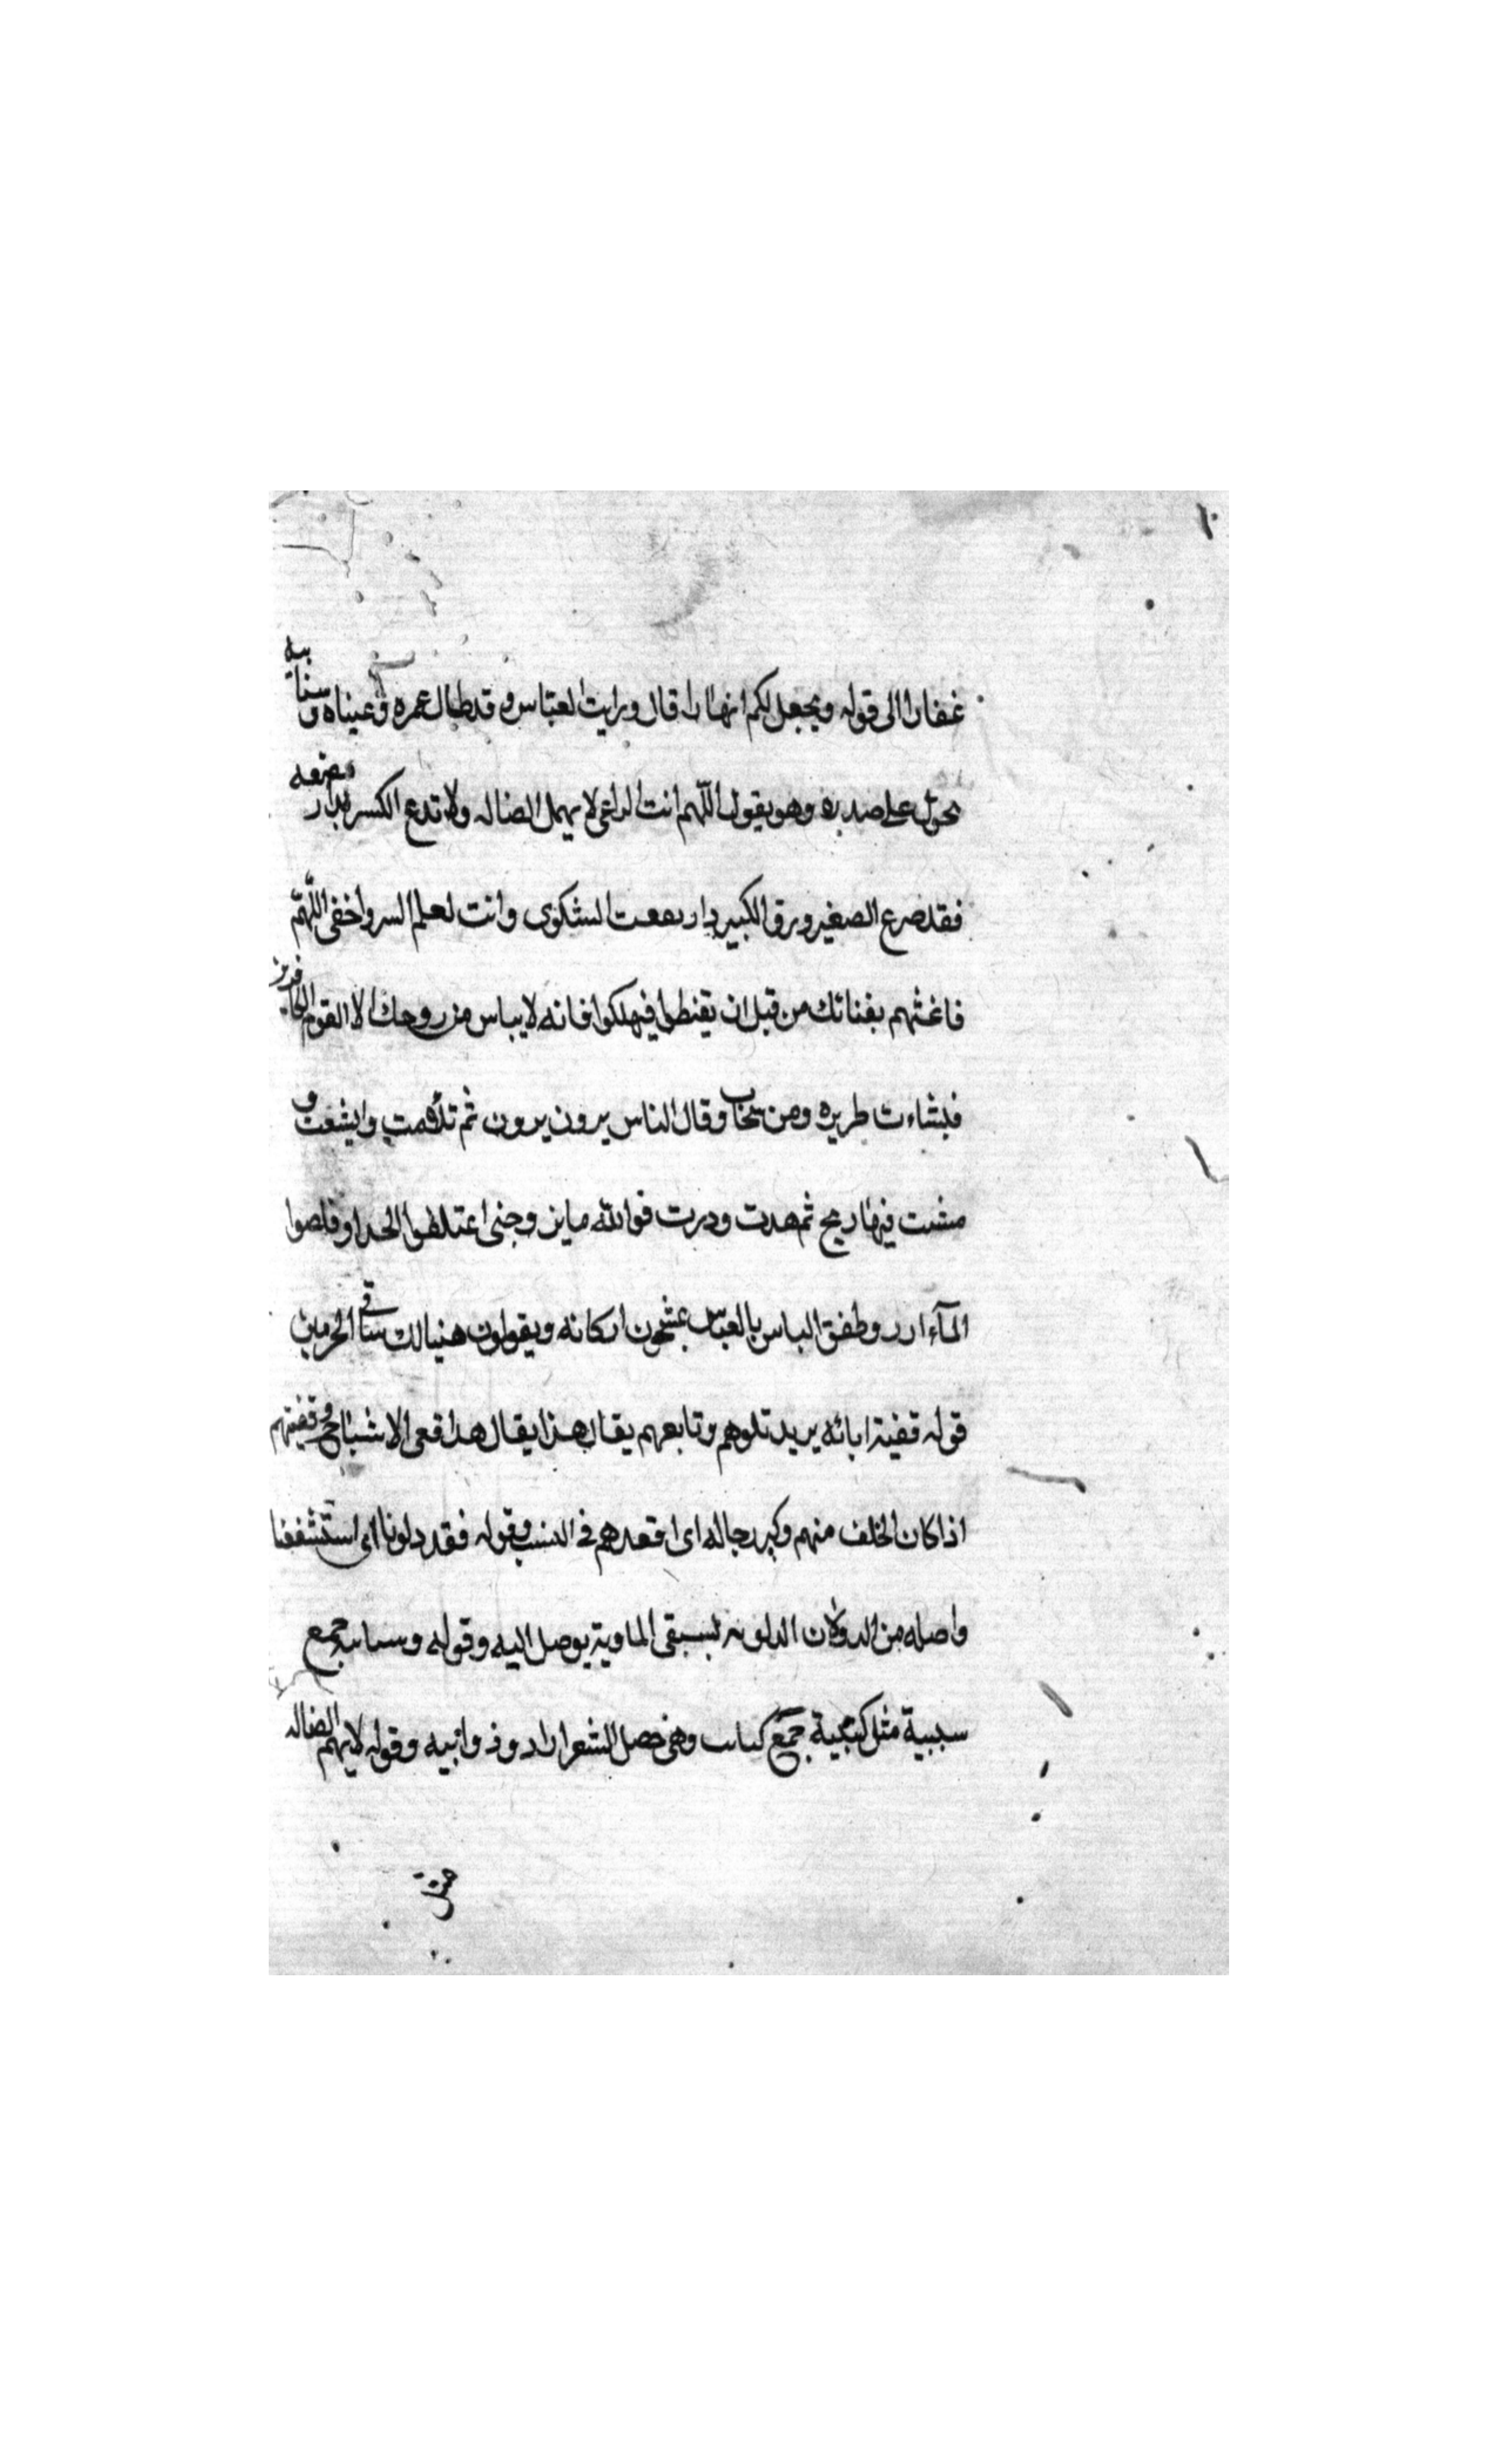 غفارا الى قوله ويجعل لكم انهارا قال ورايت العباس وقد طال عمره وعيناه وسبابيه
تجول على صدره وهو يقول اللهم انت الراعى لا يهمل الضاله ولا تدع الكسر بدار مضيعه
فقد ضرع الصغير ورق الكبير وارتفعت الشكوى وانت تعلم السر واخفى اللهم
فاغثهم بغناتك من قبل ان يقنطوا فيهلكوا فانه لا يياس من روحك الا القوم الكافرين
فنشاءت طريره ومن سحاب وقال الناس يرون يرون ثم تلامت و
مشت فيها ريح ثم هدت ودرت فوالله ما وجنى اعتلقوا الحدا وقلصوا
المآء ارر وطفق الناس بالعباس يمسحون اركانه ويقولون هنيالك ساقى الحرمين
قوله قفية ابائه يريد تلوهم وتابعهم يقال هذا يقال هذا قفى الاشياخ وقفيتهم
اذا كان الخلف منهم وكبر رجاله اى اقعدهم فى النسب وقوله فقد دلونا اى استشفعنا
واصله من الدلو لان الدلو به يستقى الما وبه يوصل اليه وقوله وسبابيه جمع
سبيبة مثل كتيبة جمع كتاب وهى خصل الشعر اراد وذوابيه وقوله لا يهمل الضاله